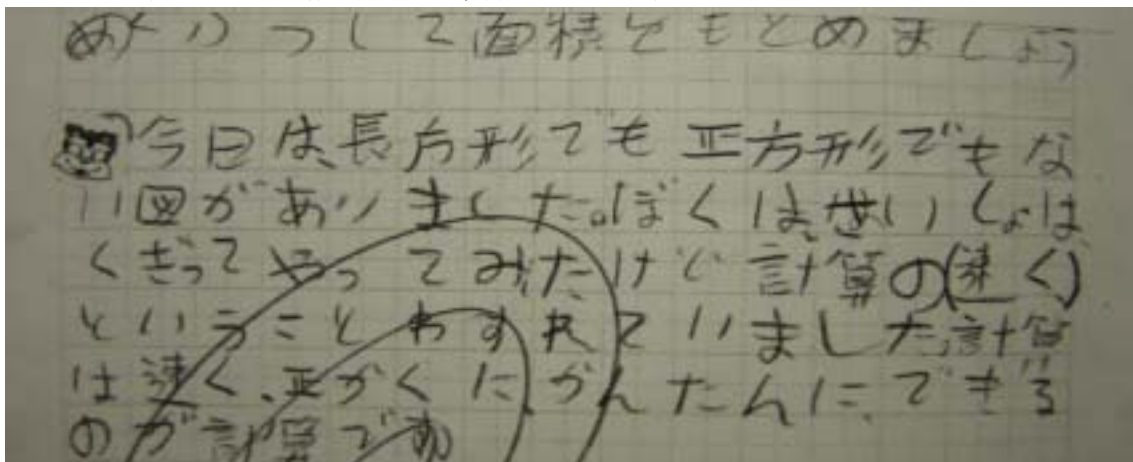 めあて つ して面積をもとめましょう
今日は、長方形でも正方形でもな
い図がありました。ぼくは、せいしょは、
くぎってやってみたけど計算の(速く)
ということわすれていました計算
は速く、正かくに、かんたんに、できる
のが計算です